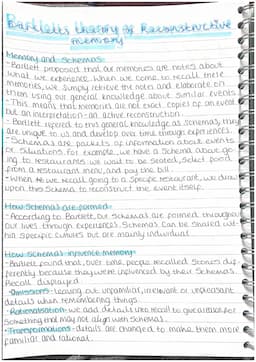 Bartlett's theory of Reconstructive
memory
Memory and Schemas:
- Bartlett proposed that our memories are notes about
what we experience. When we come to recall these
memories, we simply retrieve the notes and elaborate on
them using our general knowledge about similar events.
- This means that memories are not exact copies of an event
but an interpretation - an active reconstruction.
- Bartlett referred to this general knowledge as schemas, they
are unique to us and develop over time through experiences.
- Schemas are packets of information about events
or situations. For example, we have a schema about go
ing to restaurants we wait to be seated, select food
from a restaurant menu, and pay the bill.
- When to we recall going to a specific restaurant, we draw
upon this schema to reconstruct the event itself.
How Schemas are formed:
- According to Bartlett, our schemas are formed throughout
our lives through experiences. Schemas can be shared wit
hin specific cultures but are mainly individual.
How schemas influence memory:
- Bartlett found that, over time, people recalled stories dif
ferently because they were influenced by their schemas.
Recall displayed:
- Omissions - leaving out unfamiliar, irrelevant or unpleasant
details when remembering things.
- Rationalisation - we add details into recall to give a reason for
something that may not align with schemas.
- Transformations - details are changed to make them more
familiar and rational.